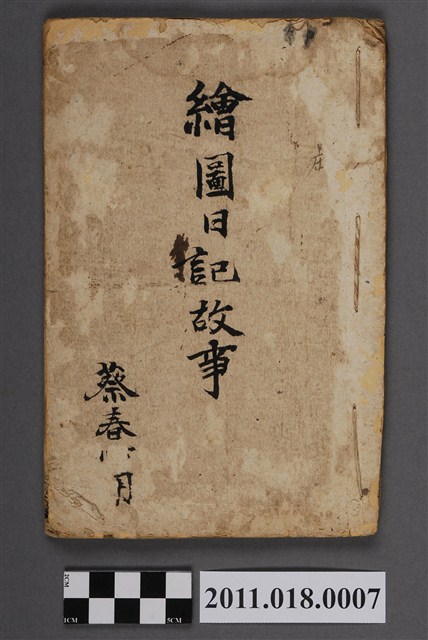 繪圖日記故事
蔡春月
2CM
1CM
5CM
2011.018.0007